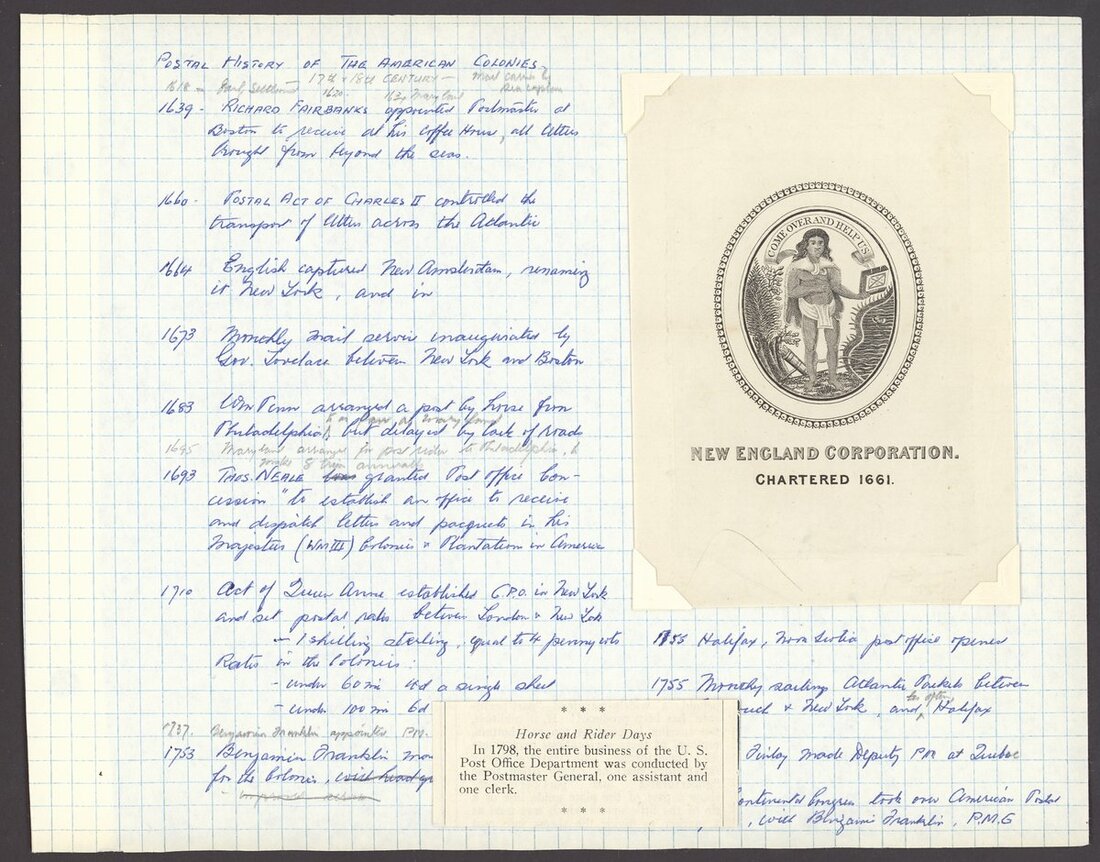 POSTAL HISTORY OF THE AMERICAN COLONIES
17th & 18th CENTURY — Mail carried by
1618 Early Settlement 1620. 1634 Maryland sea captain
1639 - RICHARD FAIRBANKS appointed Postmaster at
Boston to receive at his Coffee House, all letters
brought from beyond the seas.
1660 - POSTAL ACT OF CHARLES II controlled the
transport of letters across the Atlantic
1664 English captured New Amsterdam, renaming
it New York, and in
1673 Monthly mail service inaugurated by
Gov. Lovelace between New York and Boston
1683 Wm Penn arranged a post by horse from
Philadelphia, but delayed by lack of roads
1695 Maryland arranges for post rider to Philadelphia, to
make 8 trips annually
1693 THOS. NEALE was granted Post Office Con-
cession "to establish an office to receive
and dispatch letters and pacquets in his
Majesties (WM III) Colonies & Plantation in America
1710 Act of Queen Anne established G.P.O. in New York
and set postal rates between London & New York
- 1 shilling sterling, equal to 4 pennyweights
Rates in the Colonies:
- under 60 mi 4d a single sheet
- under 100 mi 6d
1737. Benjamin Franklin appointed P.M.
1753 Benjamin Franklin
for the Colonies,
COME OVER AND HELP US
NEW ENGLAND CORPORATION.
CHARTERED 1661.
1755 Halifax, Nova Scotia post office opened
1755 Monthly sailings Atlantic Packets between
& New York, and less often Halifax
Finlay made Deputy PM at Quebec
Continental Congress took over American Postal
, with Benjamin Franklin, P.M.G
* * *
Horse and Rider Days
In 1798, the entire business of the U. S.
Post Office Department was conducted by
the Postmaster General, one assistant and
one clerk.
* * *